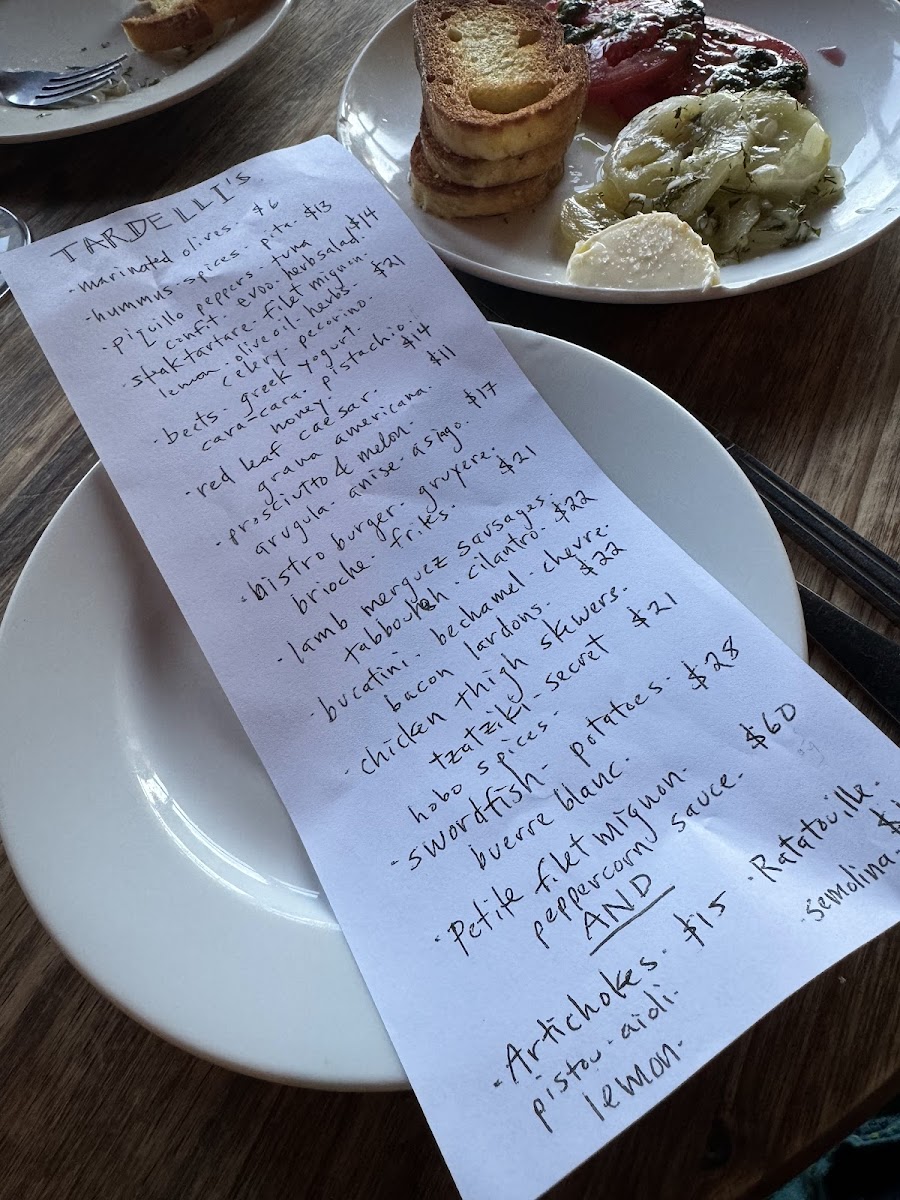 TARDELLI'S
· marinated olives - $6
· hummus - spices - pita - $13
· piquillo peppers - tuna $14
confit - evoo - herb salad -
· steak tartare - filet mignon - $21
lemon - olive oil - herbs -
celery - pecorino -
· beets - greek yogurt - $14
cara-cara - pistachio -
honey -
· red leaf caesar - $11
grana americana -
· prosciutto & melon - $17
arugula - anise - asiago -
· bistro burger - gruyere - $21
brioche - frites -
· lamb merguez sausages - $22
tabbouleh - cilantro -
· bucatini - bechamel - chevre - $22
bacon lardons -
· chicken thigh skewers - $21
tzatziki - secret
hobo spices -
· swordfish - potatoes - $28
buerre blanc -
· Petite filet mignon - $60
peppercorn sauce -
AND
· Artichokes - $15
pistou - aioli -
lemon -
· Ratatouille -
semolina -